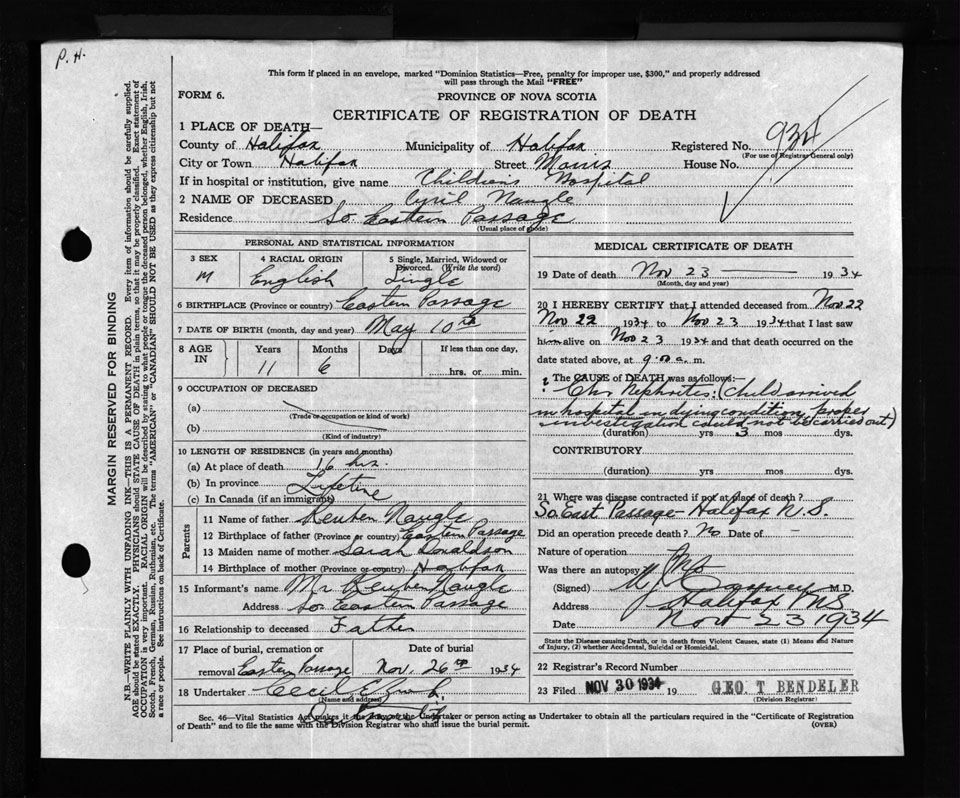 P. H.
This form if placed in an envelope, marked "Dominion Statistics—Free, penalty for improper use, $300," and properly addressed
will pass through the Mail "FREE"
FORM 6.
PROVINCE OF NOVA SCOTIA
CERTIFICATE OF REGISTRATION OF DEATH
934
1 PLACE OF DEATH—
County of Halifax Municipality of Halifax Registered No.
(For use of Registrar General only)
City or Town Halifax Street Morris House No.
If in hospital or institution, give name Childrens Hospital
2 NAME OF DECEASED Cyril Naugle
Residence So. Eastern Passage
(Usual place of abode)
PERSONAL AND STATISTICAL INFORMATION
3 SEX 4 RACIAL ORIGIN 5 Single, Married, Widowed or
Divorced. (Write the word)
M English Single
6 BIRTHPLACE (Province or country) Eastern Passage
7 DATE OF BIRTH (month, day and year) May 10th
8 AGE IN Years Months Days If less than one day,
11 6 hrs. or min.
9 OCCUPATION OF DECEASED
(a)
(Trade or occupation or kind of work)
(b)
(Kind of industry)
10 LENGTH OF RESIDENCE (in years and months)
(a) At place of death 16 hrs.
(b) In province Lifetime
(c) In Canada (if an immigrant)
Parents
11 Name of father Reuben Naugle
12 Birthplace of father (Province or country) Eastern Passage
13 Maiden name of mother Sarah Donaldson
14 Birthplace of mother (Province or country) Halifax
15 Informant's name Mr Reuben Naugle
Address So Eastern Passage
16 Relationship to deceased Father
17 Place of burial, cremation or Date of burial
removal Eastern Passage Nov. 26th 1934
18 Undertaker Cecil E
(Name and address)
MEDICAL CERTIFICATE OF DEATH
19 Date of death Nov 23 1934
(Month, day and year)
20 I HEREBY CERTIFY that I attended deceased from Nov 22
Nov 22 1934 to Nov 23 1934 that I last saw
him alive on Nov 23 1934 and that death occurred on the
date stated above, at 9.00 a. m.
? The CAUSE of DEATH was as follows:
Chr Nephritis: (Child arrived
in hospital in dying condition, proper
investigation could not be carried out)
(duration) yrs 3 mos dys.
CONTRIBUTORY
(duration) yrs. mos. dys.
21 Where was disease contracted if not at place of death?
So. East Passage - Halifax N.S.
Did an operation precede death? No Date of
Nature of operation
Was there an autopsy? No
(Signed) M.D.
Address Halifax N.S.
Date Nov 23 1934
State the Disease causing Death, or in death from Violent Causes, state (1) Means and Nature
of Injury, (2) whether Accidental, Suicidal or Homicidal.
22 Registrar's Record Number
23 Filed NOV 30 1934 19 GEO. T BENDELER
(Division Registrar)
Sec. 46—Vital Statistics Act makes it the duty of the Undertaker or person acting as Undertaker to obtain all the particulars required in the "Certificate of Registration
of Death" and to file the same with the Division Registrar who shall issue the burial permit. (OVER)
MARGIN RESERVED FOR BINDING
N.B.—WRITE PLAINLY WITH UNFADING INK—THIS IS A PERMANENT RECORD. Every item of information should be carefully supplied.
AGE should be stated EXACTLY. PHYSICIANS should STATE CAUSE OF DEATH in plain terms, so that it may be properly classified. Exact statement of
OCCUPATION is very important. RACIAL ORIGIN will be described by stating to what people or tongue the deceased person belonged, whether English, Irish,
Scotch, French, German, Russian, Ruthenian, etc. The terms "AMERICAN" or "CANADIAN" SHOULD NOT BE USED as they express citizenship but not
a race or people. See instructions on back of Certificate.